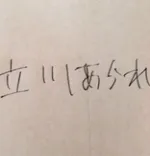 立川あられ